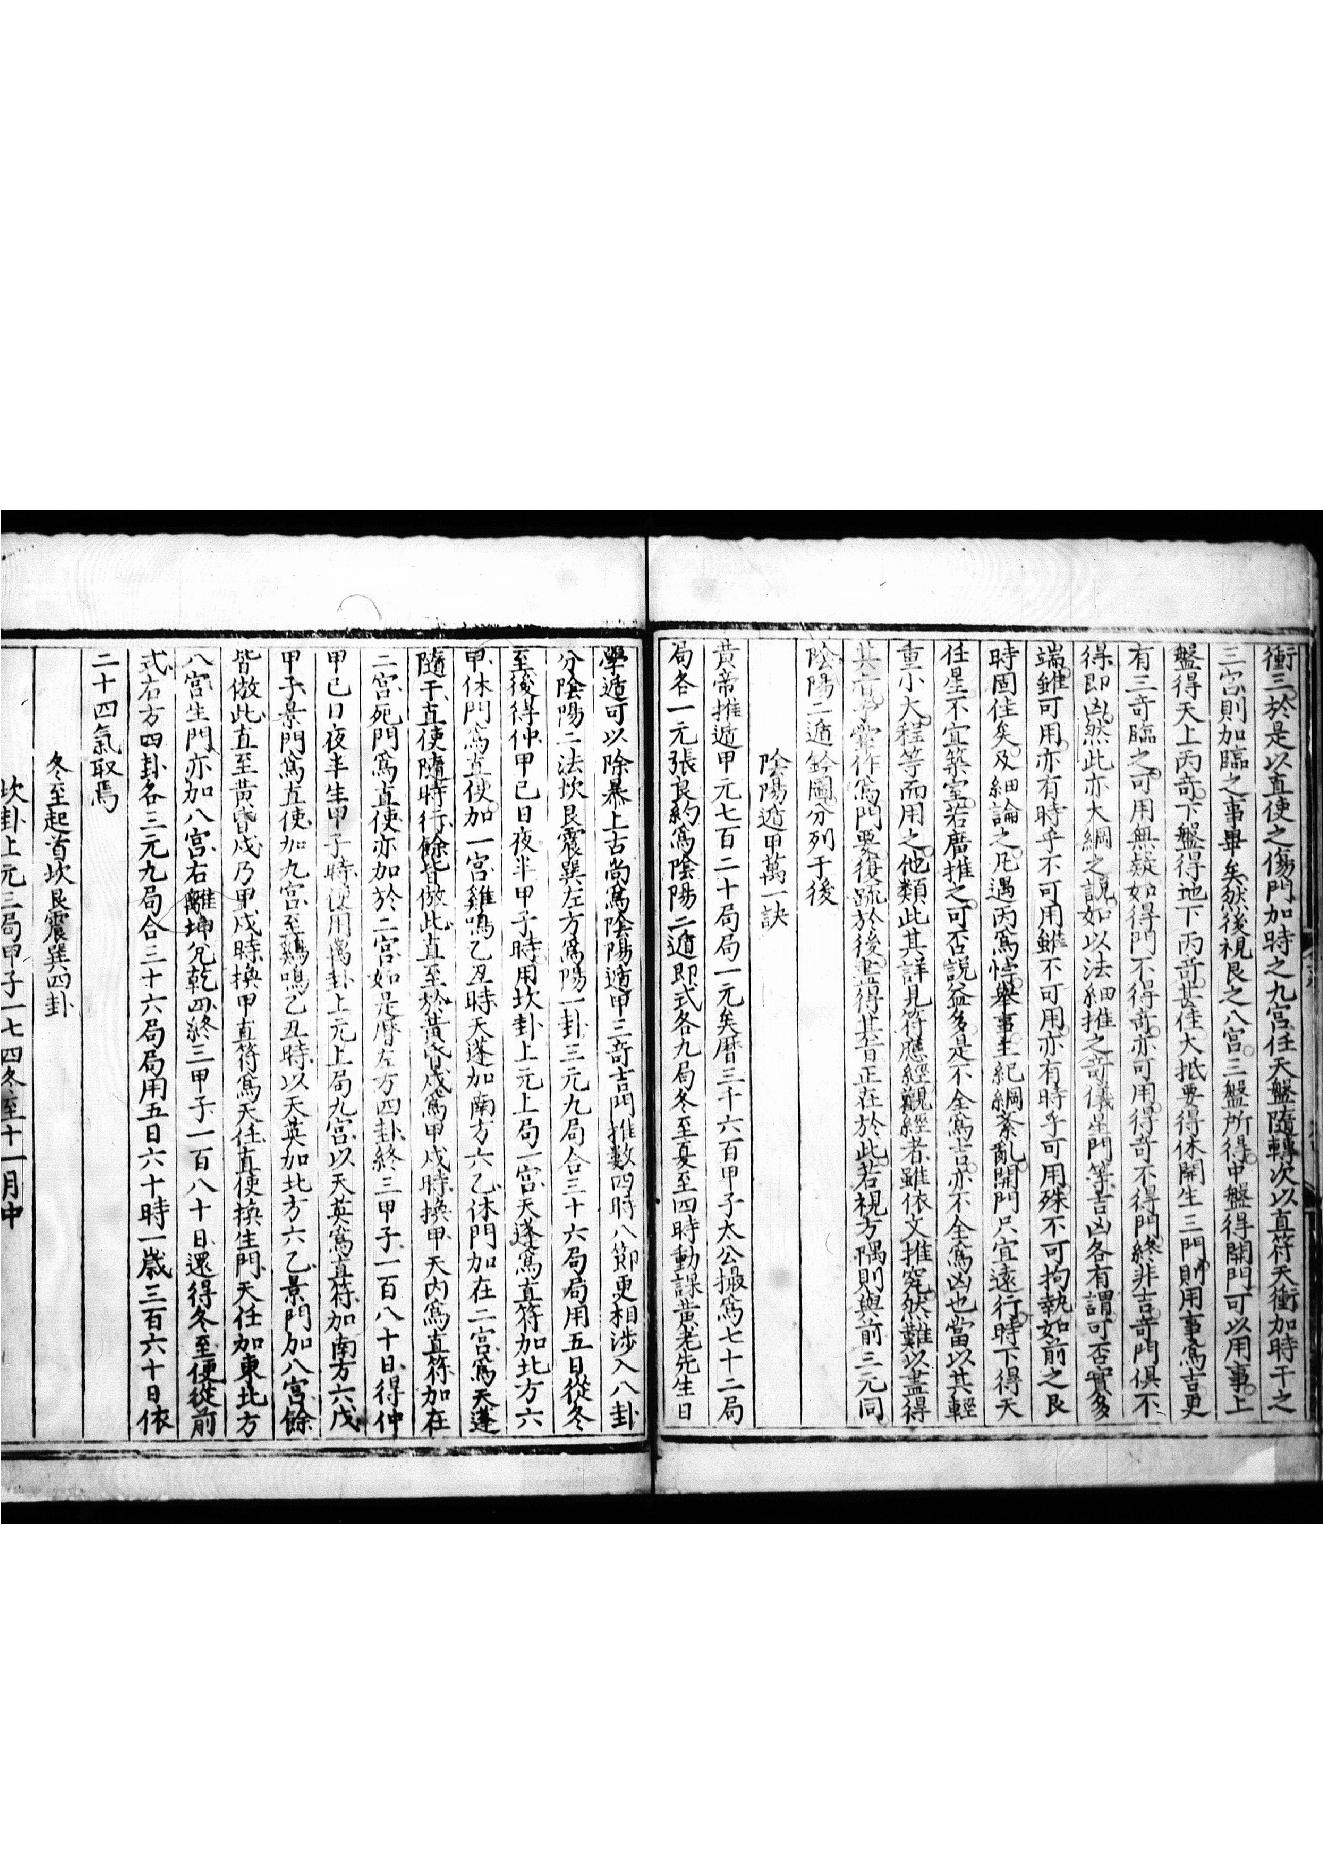 衝三於是以直使之傷門加時之九宮任天盤隨轉次以直符天衝加時干之
三宮則加臨之事畢矣然後視艮之八宮三盤所得中盤得開門可以用事上
盤得天上丙奇下盤得地下丙奇甚佳大抵要得休開生三門則用事為吉更
有三奇臨之可用無疑如得門不得奇亦可用得奇不得門終非吉奇門俱不
得即凶然此亦大綱之說如以法細推之奇儀星門等吉凶各有謂可否實多
端雖可用亦有時乎不可用雖不可用亦有時乎可用殊不可拘執如前之艮
時固佳矣及細論之凡遇丙為悖舉事主紀綱紊亂開門只宜遠行時下得天
任星不宜築室若廣推之可否說益多是不全為吉亦不全為凶也當以其輕
重小大程等而用之他類此其詳見符應經觀經者雖依文推究然難以盡得
其旨予嘗作為門要復疏於後盡得其旨正在於此若視方隅則與前三元同
陰陽二遁鈐圖分列于後
陰陽遁甲萬一訣
黃帝推遁甲元七百二十局局一元矣曆三千六百甲子太公撮為七十二局
局各一元張良約為陰陽二遁即式各九局冬至夏至四時動課黃老先生日
學遁可以除暴上古尚為陰陽遁甲三奇吉門推數四時八節更相涉入八卦
分陰陽二法坎艮震巽左方為陽一卦三元九局合三十六局局用五日從冬
至後得仲甲己日夜半甲子時用坎卦上元上局一宮天蓬為直符加北方六
甲休門為直使加一宮雞鳴乙丑時天蓬加南方六乙休門加在二宮為天蓬
隨干直使隨時行餘皆倣此直至於黃昏戌為甲戌時換甲天內為直符加在
二宮死門為直使亦加於二宮如是曆左方四卦終三甲子一百八十日得仲
甲己日夜半生甲子時使用离卦上元上局九宮以天英為直符加南方六戊
甲子景門為直使加九宮至鷄鳴乙丑時以天英加北方六乙景門加八宮餘
皆倣此直至黃昏戌乃甲戌時換甲直符為天任直使換生門天任加東北方
八宮生門亦加八宮右離坤兌乾四終三甲子一百八十日還得冬至便從前
式右方四卦各三元九局合三十六局局用五日六十時一歲三百六十日依
二十四氣取焉
冬至起首坎艮震巽四卦
坎卦上元三局甲子一七四冬至十一月中